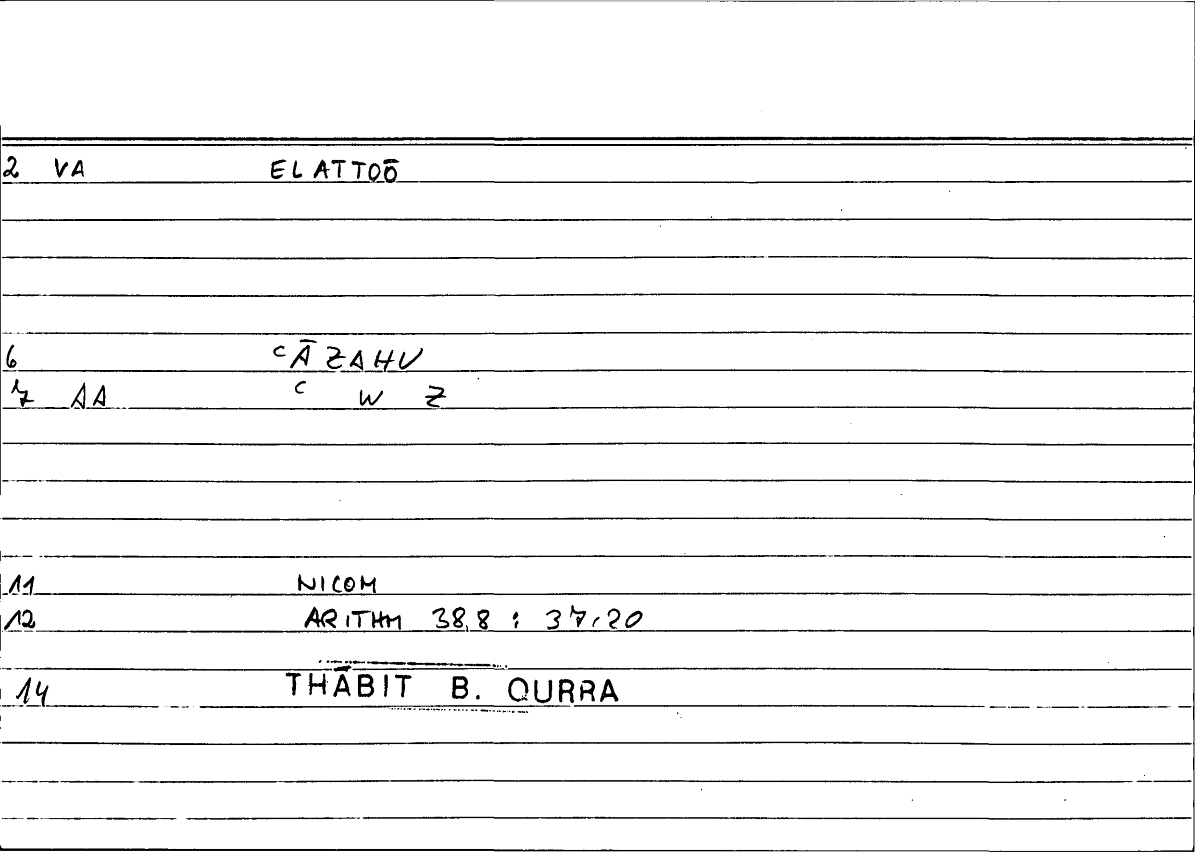 2 VA ELATTOŌ
6 ᶜĀZAHU
7 AA ᶜ W Z
11 NICOM
12 ARITHM 38,8 : 37,20
14 THĀBIT B. QURRA